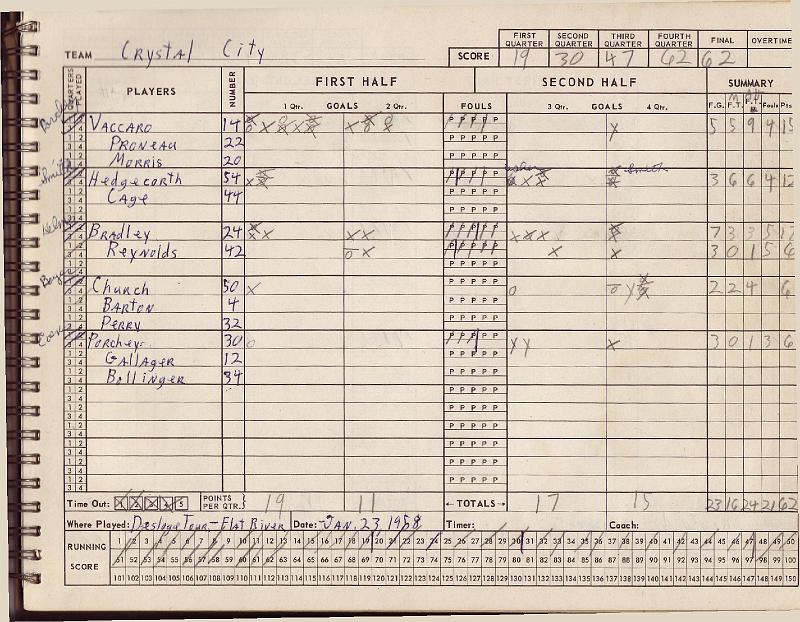 FIRST QUARTER SECOND QUARTER THIRD QUARTER FOURTH QUARTER FINAL OVERTIME
TEAM Crystal City SCORE 19 30 47 62 62
QUARTERS PLAYED PLAYERS NUMBER FIRST HALF SECOND HALF SUMMARY
1 Qtr. GOALS 2 Qtr. FOULS 3 Qtr. GOALS 4 Qtr. F.G. F.T. F.T. M Fouls Pts
VACCARO 14 P P P P P 5 5 9 4 15
PRONEAU 22 P P P P P
MORRIS 20 P P P P P
Hedgecorth 54 P P P P P Smith 3 6 6 4 12
CAGE 44 P P P P P
P P P P P
BRADLEY 24 P P P P P 7 3 3 5 17
Reynolds 42 P P P P P 3 0 1 5 6
P P P P P
Church 50 P P P P P 2 2 4 6
BARTON 4 P P P P P
PERRY 32 P P P P P
PORCHEY 30 P P P P P 3 0 1 3 6
GALLAGER 12 P P P P P
Bollinger 34 P P P P P
P P P P P
P P P P P
P P P P P
P P P P P
P P P P P
P P P P P
Time Out: 1 2 3 4 5 POINTS PER QTR. 19 11 ←TOTALS→ 17 15 23 16 24 21 62
Where Played: Desloge Tour - Flat River Date: JAN. 23, 1958 Timer: Coach:
RUNNING SCORE
1 2 3 4 5 6 7 8 9 10 11 12 13 14 15 16 17 18 19 20 21 22 23 24 25 26 27 28 29 30 31 32 33 34 35 36 37 38 39 40 41 42 43 44 45 46 47 48 49 50
51 52 53 54 55 56 57 58 59 60 61 62 63 64 65 66 67 68 69 70 71 72 73 74 75 76 77 78 79 80 81 82 83 84 85 86 87 88 89 90 91 92 93 94 95 96 97 98 99 100
101 102 103 104 105 106 107 108 109 110 111 112 113 114 115 116 117 118 119 120 121 122 123 124 125 126 127 128 129 130 131 132 133 134 135 136 137 138 139 140 141 142 143 144 145 146 147 148 149 150